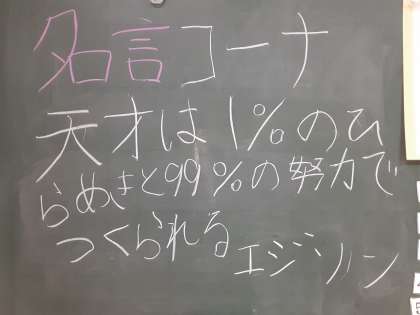 名言コーナ
天才は1%のひ
らめきと99%の努力で
つくられる
エジソン